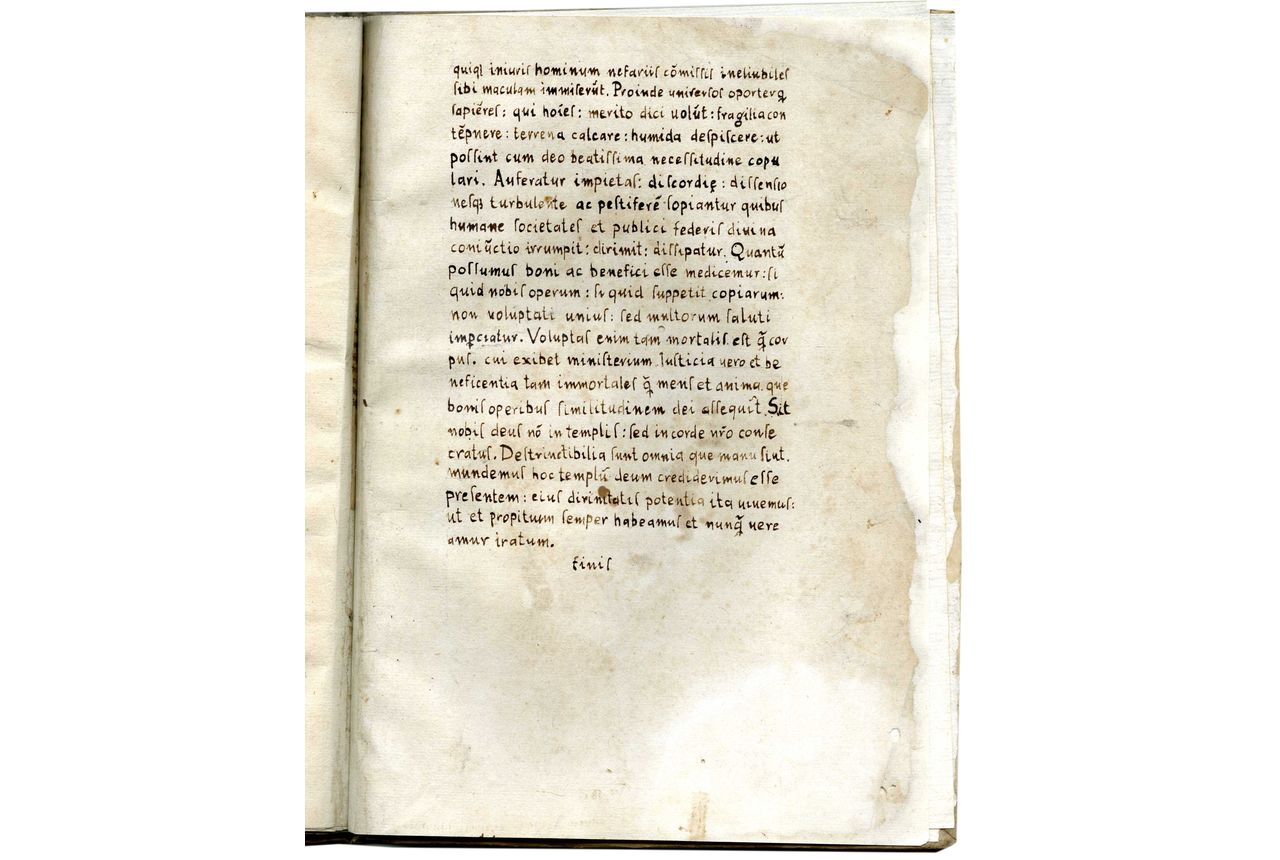 quiq; iniuriſ hominum nefariiſ cōmiſſiſ ineluibileſ
ſibi maculam immiſerūt. Proinde univerſoſ oportet
ſapiēreſ: qui hoīeſ: merito dici uolūt: fragilia con
tēpnere: terrena calcare: humida deſpiſcere: ut
poſſint cum deo beatiſſima neceſſitudine copu
lari. Auferatur impietaſ: diſcordię: diſſenſio
neſq; turbulente ac peſtiferę ſopiantur quibuſ
humane ſocietateſ et publici federiſ divina
coniūctio irrumpit: dirimit: diſſipatur. Quantū
poſſumuſ boni ac benefici eſſe medicemur: ſi
quid nobiſ operum: ſi quid ſuppetit copiarum:
non voluptati uniuſ: ſed multorum ſaluti
Voluptaſ enim tam mortaliſ eſt q̄ cor
puſ. cui exibet miniſterium. Iuſticia uero et be
neficentia tam immortaleſ q̄ menſ et anima. que
boniſ operibuſ ſimilitudinem dei aſſequit̄. Sit
nobiſ deuſ nō in templiſ: ſed in corde nr̄o conſe
cratuſ. Deſtructibilia ſunt omnia que manu ſint.
mundemuſ hoc templū deum crediderimuſ eſſe
preſentem: eiuſ divinitatiſ potentia ita uiuemuſ:
ut et propitium ſemper habeamuſ et nunq̄ vere
amur iratum.
finiſ